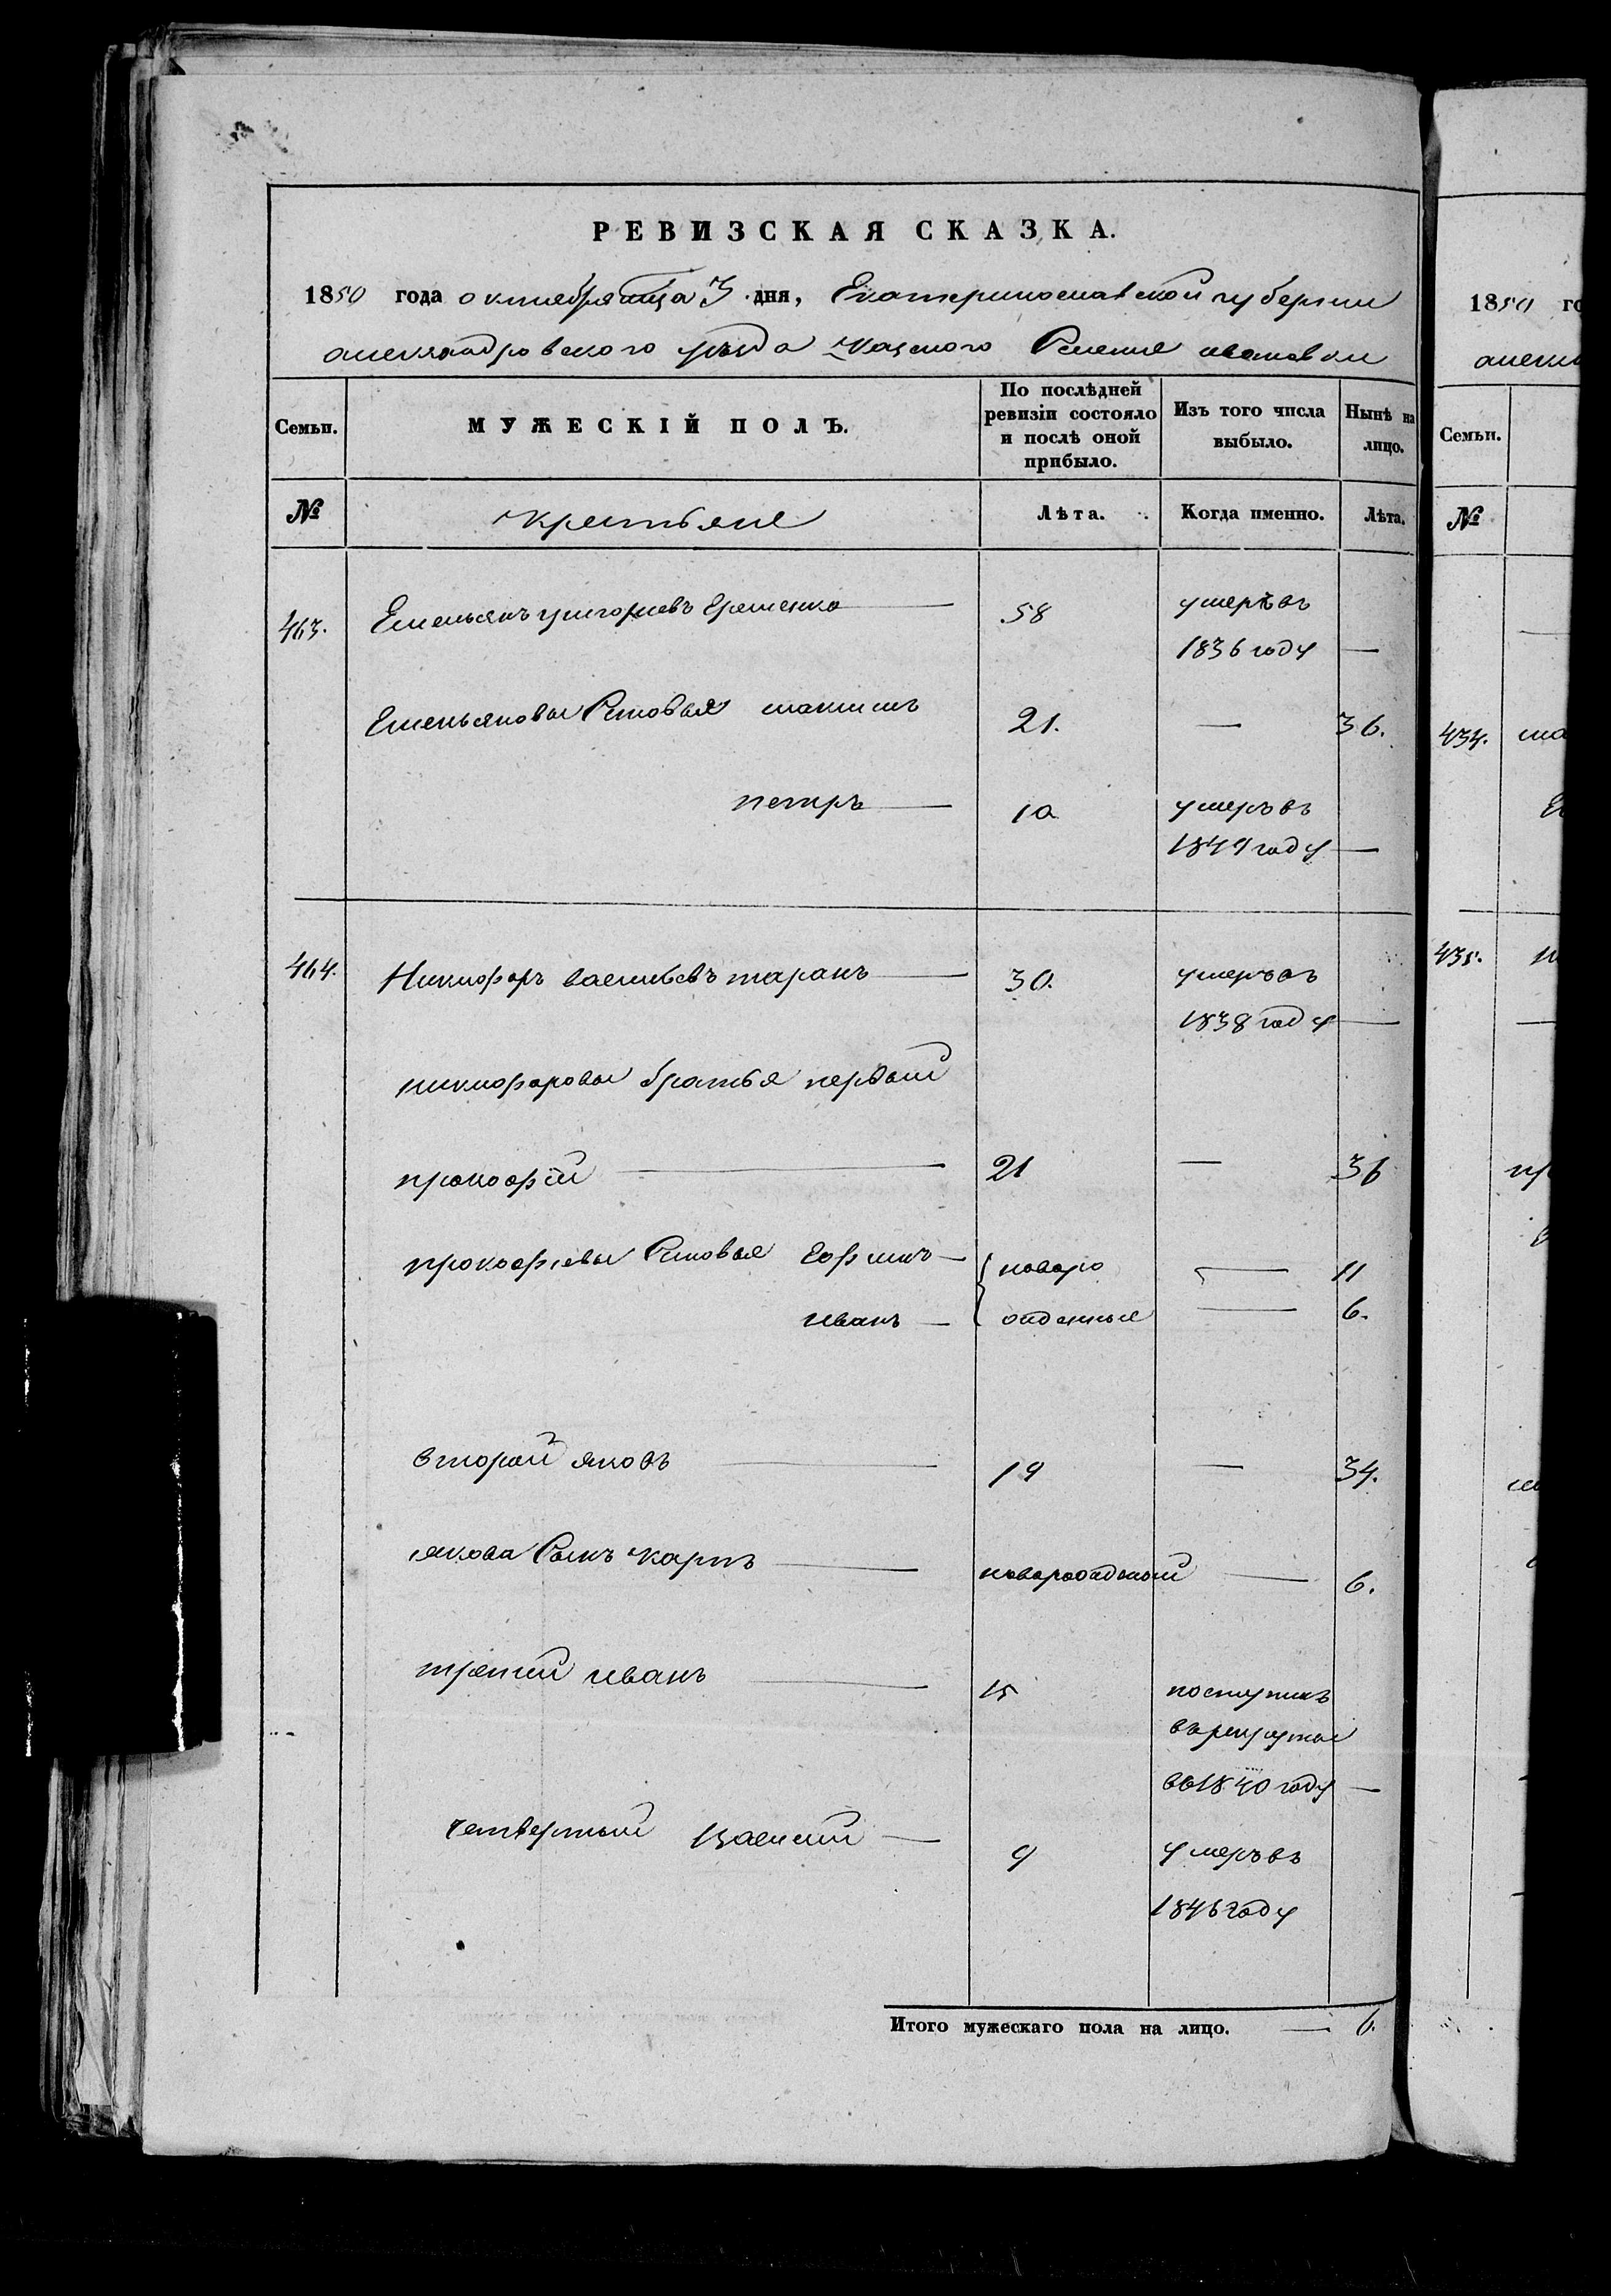 РЕВИЗСКАЯ СКАЗКА.
1850 года октября мца 3 дня, Екатеринославской губернии
александровского уезда казеного Селения
Семьи. МУЖЕСКІЙ ПОЛЪ. По послѣдней ревизіи состояло и послѣ оной прибыло. Изъ того числа выбыло. Нынѣ на лицо.
№ крестьяне Лѣта. Когда именно. Лѣта.
463. Емельянъ григорьевъ 58 умеръ въ
1836 году —
Емельяновы Сыновья максимъ 21. — 36.
петръ — 10 умеръ въ
1849 году —
464. Никифоръ васильевъ таранъ — 30. умеръ въ
1838 году —
никифоровы братья первый
прокофій — 21 — 36
прокофіевы Сыновья Ефимъ — новоро — 11
иванъ — жденные — 6.
второй яковъ — 19 — 34.
якова Сынъ карпъ — новорожденый — 6.
третий иванъ — 15 поступилъ
в рекруты
въ 1840 году —
четвертый Василий — 9 умеръ въ
1846 году
Итого мужескаго пола на лицо. — 6.
1850 го
Семьи.
№
434.
435.